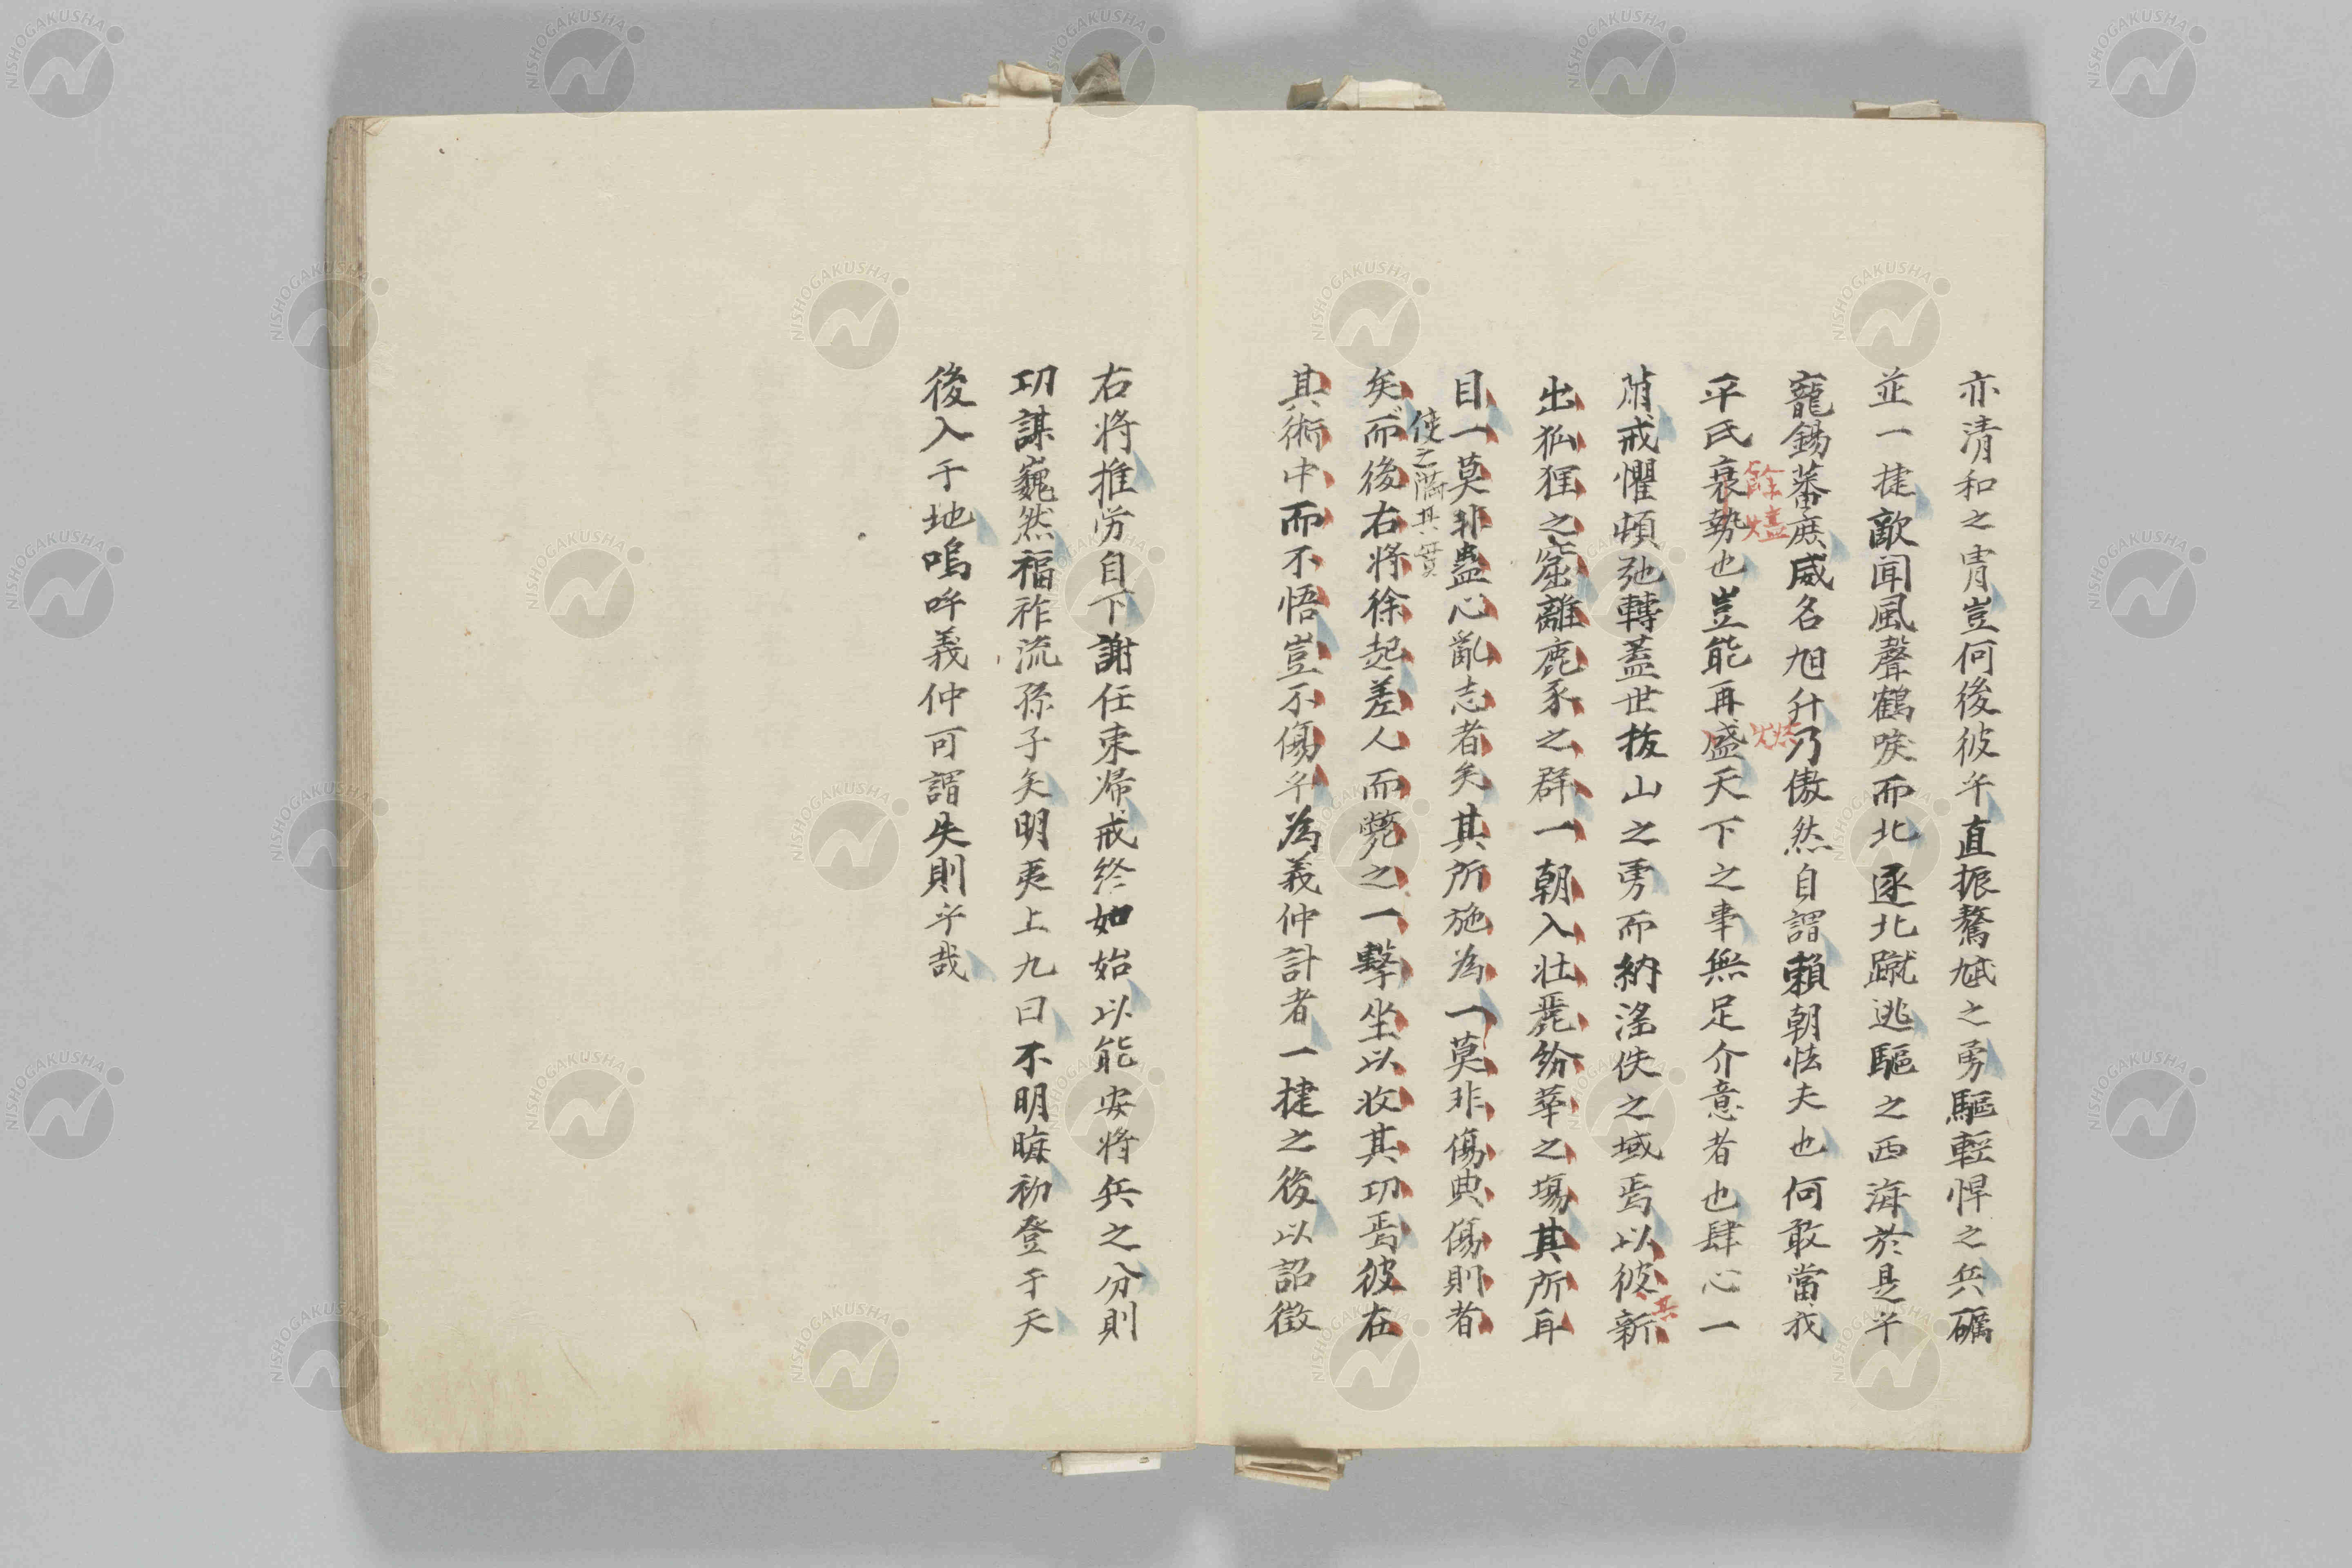 亦清和之冑豈何後彼乎直振驁虓之勇驅輕悍之兵礪
並一捷敵聞風聲鶴唳而北逐北蹴逃驅之西海於是乎
寵錫蕃庶威名旭升乃傲然自謂賴朝怯夫也何敢當我
餘燼
燃
平氏衰勢也豈能再盛天下之事無足介意者也肆心一
戒懼頓弛轉蓋世拔山之勇而納淫佚之域焉以彼新
其
出狐狸之窟離鹿豕之群一朝入壮麗紛華之場其所耳
目一莫非蠱心亂志者矣其所施為一莫非傷典傷則者
使之滿其貫
矣而後右將徐起差人而斃之一擊坐以收其功焉彼在
其術中而不悟豈不傷乎為義仲計者一捷之後以詔徵
右將推労自下謝任東帰戒終如始以能安將兵之分則
功謀巍然福祚流孫子矣明夷上九曰不明晦初登于天
後入于地嗚呼義仲可謂失則乎哉
NISHOGAKUSHA